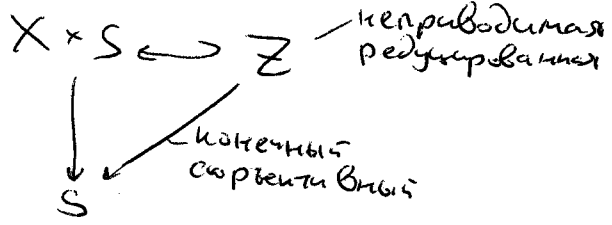 неприводимая
X × S ↩ Z редуцированная
конечный
сюръективный
S